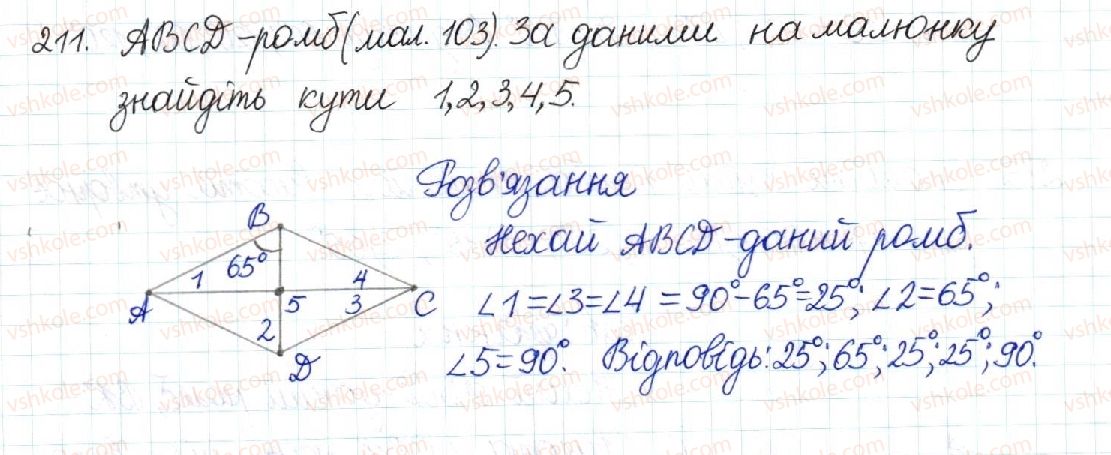 211. ABCD-ромб (мал. 103). За даними на малюнку
знайдіть кути 1,2,3,4,5.
Розв'язання
Нехай ABCD-даний ромб.
∠1=∠3=∠4=90°-65°=25°; ∠2=65°;
∠5=90°. Відповідь: 25°; 65°; 25°; 25°; 90°.
B
65°
1
4
A
5
3
C
2
D
vshkole.com